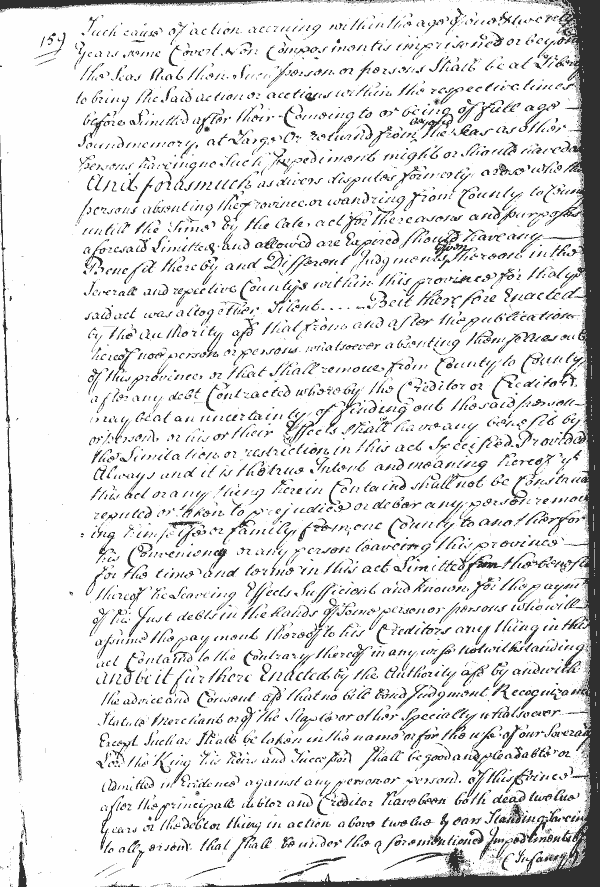 159
Such cause of action accruing within the age of one & twenty
years feme Covert Non Compos mentis imprisoned or beyon
the Seas that then Such person or persons Shall be at Liberty
to bring the Said action or actions within the respective times
before Limitted after their Comeing to or being of full age
Soundmemory, at Large Or returned from the Seas as other
Persons haveing no Such Impediment might or Should have done
And forasmuch as divers disputes formerly arose when the
persons absenting the province or wandring from County to County
untill the time by the late act for the reasons and purposes
aforesaid Limitted and allowed are Expired should have any
Benefit thereby and Different Judgments given thereon in the
Severall and repective Countys within this province for that ye
said act was altogether Silent ..... Be it therefore Enacted
by the authority afd that from and after the publication
hereof noe person or persons whatsoever absenting themselves out
of this province or that Shall remove from County to County
after any debt Contracted whereby the Creditor or Creditors
may be at an uncertainty of finding out the said person
or persons or his or their Effects Shall have any benefit by
the Limitation or restriction in this act Specified Provided
Always and it is the true Intent and meaning hereof yt
this act or any thing herein Containd shall not be Construed
reputed or taken to prejudice or debar any person remov
ing himself or family from one County to another for
his Conveniency or any person leaveing this province
for the time and terme in this act Limitted from the benefit
thereof he Leaveing Effects Sufficient and known for the paymt
of his Just debts in the hands of Some person or persons who will
assume the payment thereof to his Creditors any thing in this
act Containd to the Contrary thereof in any wise notwithstanding
and be it further Enacted by the Authority afd by and with
the advice and Consent afd that no bill bond Judgment Recognizance
Statute Merchant or of the Staple or other Specialty whatsoever
Except Such as Shall be taken in the name or for the use of our Soveraign
Lord the King his heirs and Successors shall be good and pleadable or
Admitted in Evidence against any person or persons of this Province
after the principall debtor and Creditor have been both dead twelve
years or the debt or thing in action above twelve years Standing Saveing
to all persons that shall be under the aforementioned Impediments of
Infancy